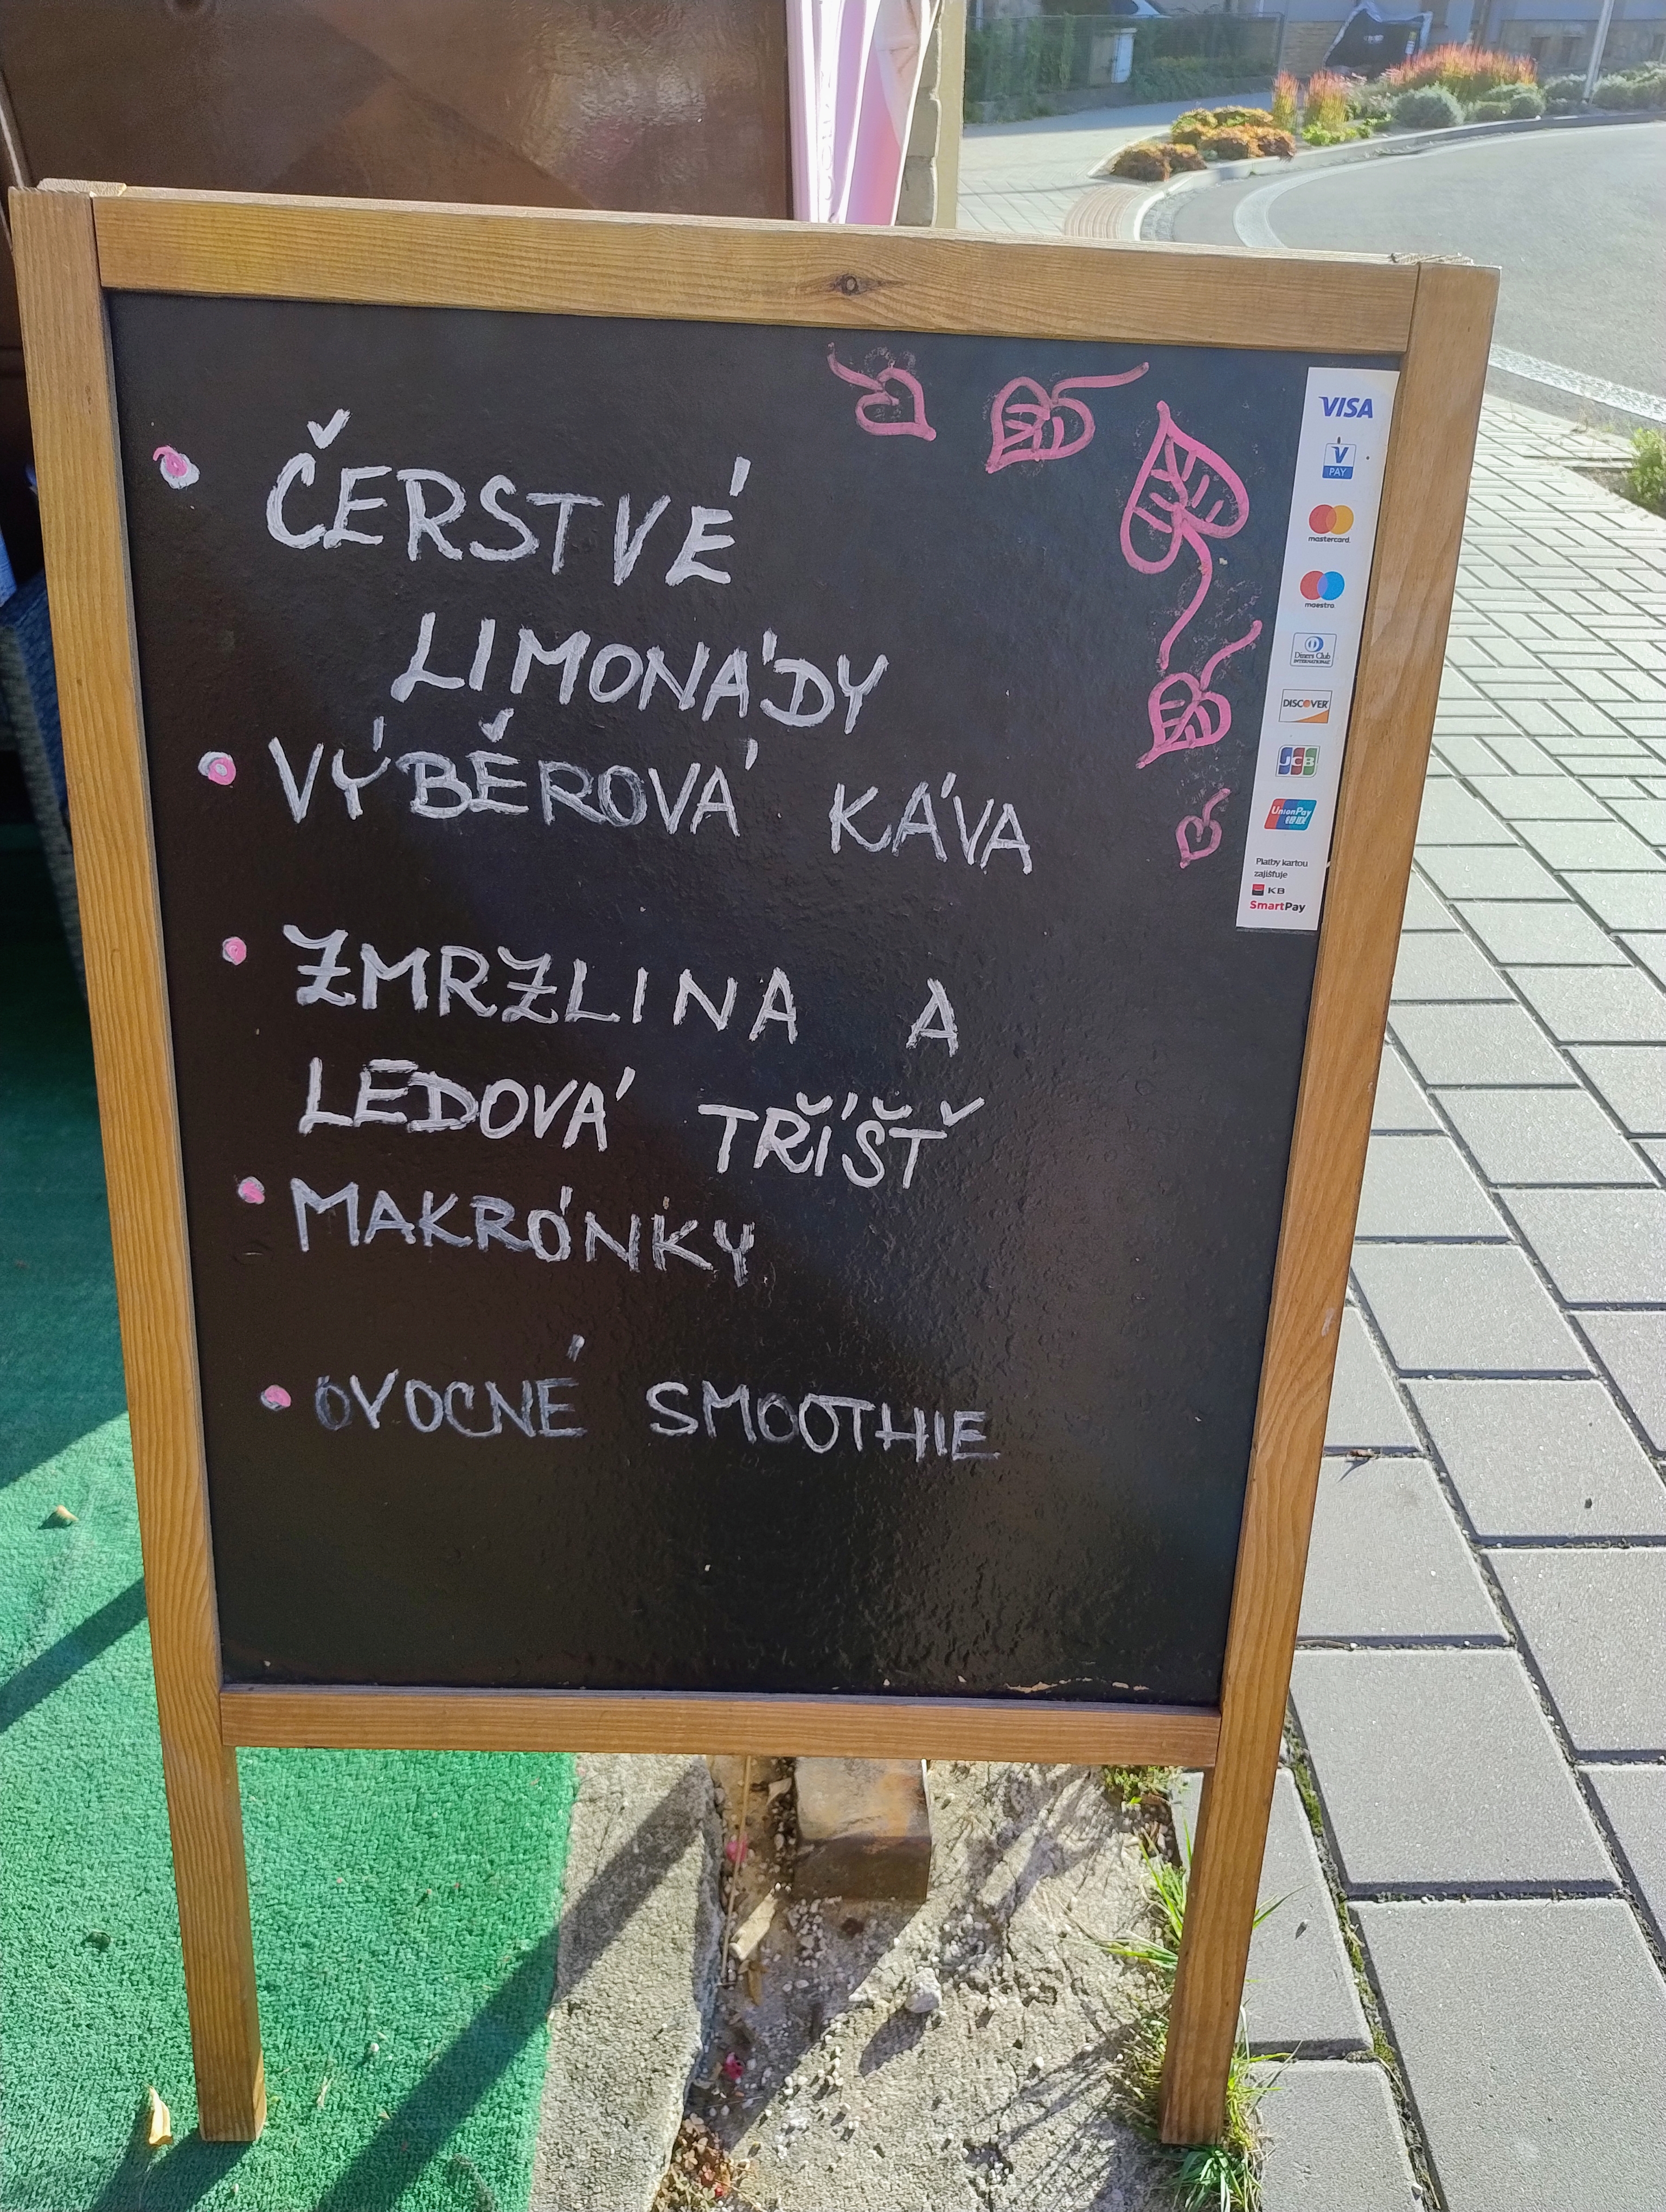 ČERSTVÉ
LIMONÁDY
VÝBĚROVÁ KÁVA
ZMRZLINA A
LEDOVÁ TŘÍŠŤ
MAKRÓNKY
OVOCNÉ SMOOTHIE
VISA
V
PAY
mastercard.
maestro.
Diners Club
INTERNATIONAL
DISCOVER
JCB
UnionPay
银联
Platby kartou
zajišťuje
KB
SmartPay